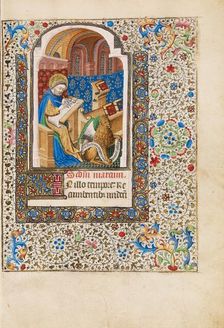 Scdm marcum.
In illo tempore Re
cumbentibus